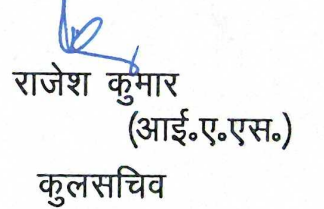 राजेश कुमार
(आई॰ए॰एस॰)
कुलसचिव